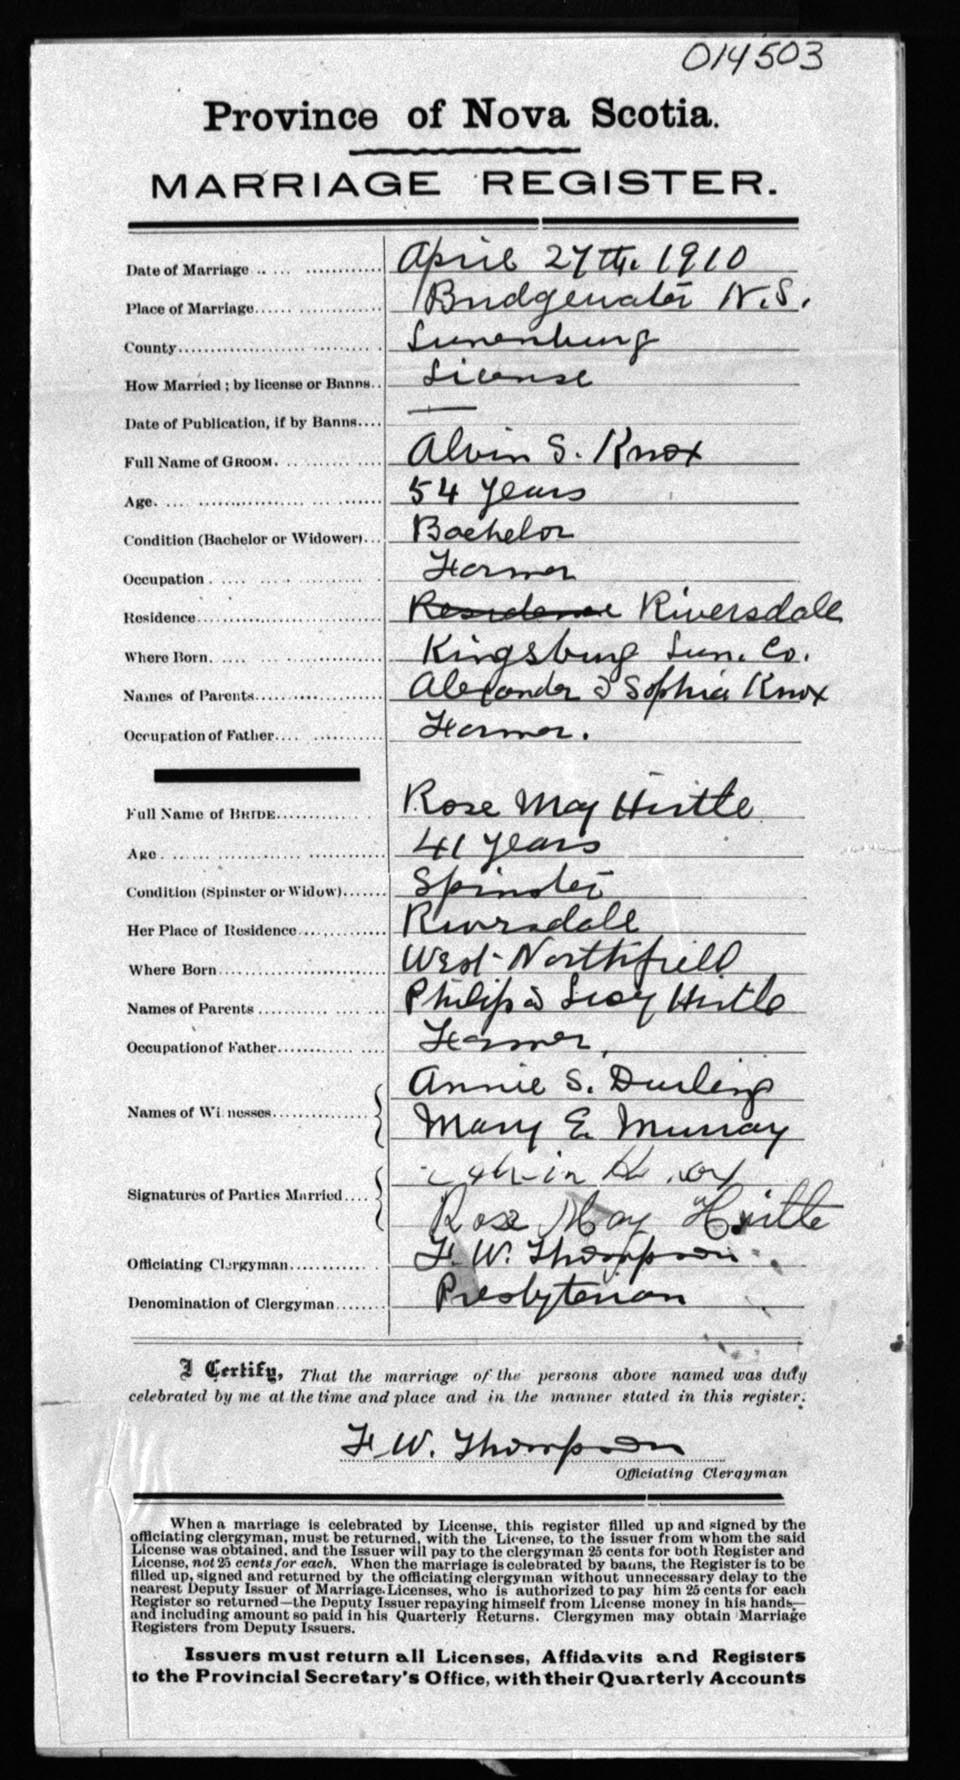 014503
Province of Nova Scotia.
MARRIAGE REGISTER.
Date of Marriage .. ... ............ April 27th. 1910
Place of Marriage...... ............. Bridgewater N.S.
County.................... .......... Lunenburg
How Married ; by license or Banns.. License
Date of Publication, if by Banns.... —
Full Name of GROOM. . .......... Alvin S. Knox
Age. ... ................ ...... 54 years
Condition (Bachelor or Widower)... Bachelor
Occupation . .... .... .. .......... . Farmer
Residence............................ Residence Riversdale
Where Born. .... ................ Kingsburg Lun. Co.
Names of Parents................... Alexander & Sophia Knox
Occupation of Father.... ........... Farmer.
Full Name of BRIDE.............. Rose May Hirtle
Age .... ...... ........ ............ 41 years
Condition (Spinster or Widow)....... Spinster
Her Place of Residence............. Riversdale
Where Born......................... West Northfield
Names of Parents .......... ... .... Philip & Hirtle
Occupation of Father............ .... Farmer,
Names of Witnesses............... Annie S. Durling
Mary E. Murray
Signatures of Parties Married.... Alvin Knox
Rose May Hirtle
Officiating Clergyman............ F. W. Thompson
Denomination of Clergyman........ Presbyterian
I Certify, That the marriage of the persons above named was duly
celebrated by me at the time and place and in the manner stated in this register.
F. W. Thompson
Officiating Clergyman
When a marriage is celebrated by License, this register filled up and signed by the
officiating clergyman, must be returned, with the License, to the issuer from whom the said
License was obtained, and the Issuer will pay to the clergyman 25 cents for both Register and
License, not 25 cents for each. When the marriage is celebrated by banns, the Register is to be
filled up, signed and returned by the officiating clergyman without unnecessary delay to the
nearest Deputy Issuer of Marriage Licenses, who is authorized to pay him 25 cents for each
Register so returned—the Deputy Issuer repaying himself from License money in his hands—
and including amount so paid in his Quarterly Returns. Clergymen may obtain Marriage
Registers from Deputy Issuers.
Issuers must return all Licenses, Affidavits and Registers
to the Provincial Secretary's Office, with their Quarterly Accounts